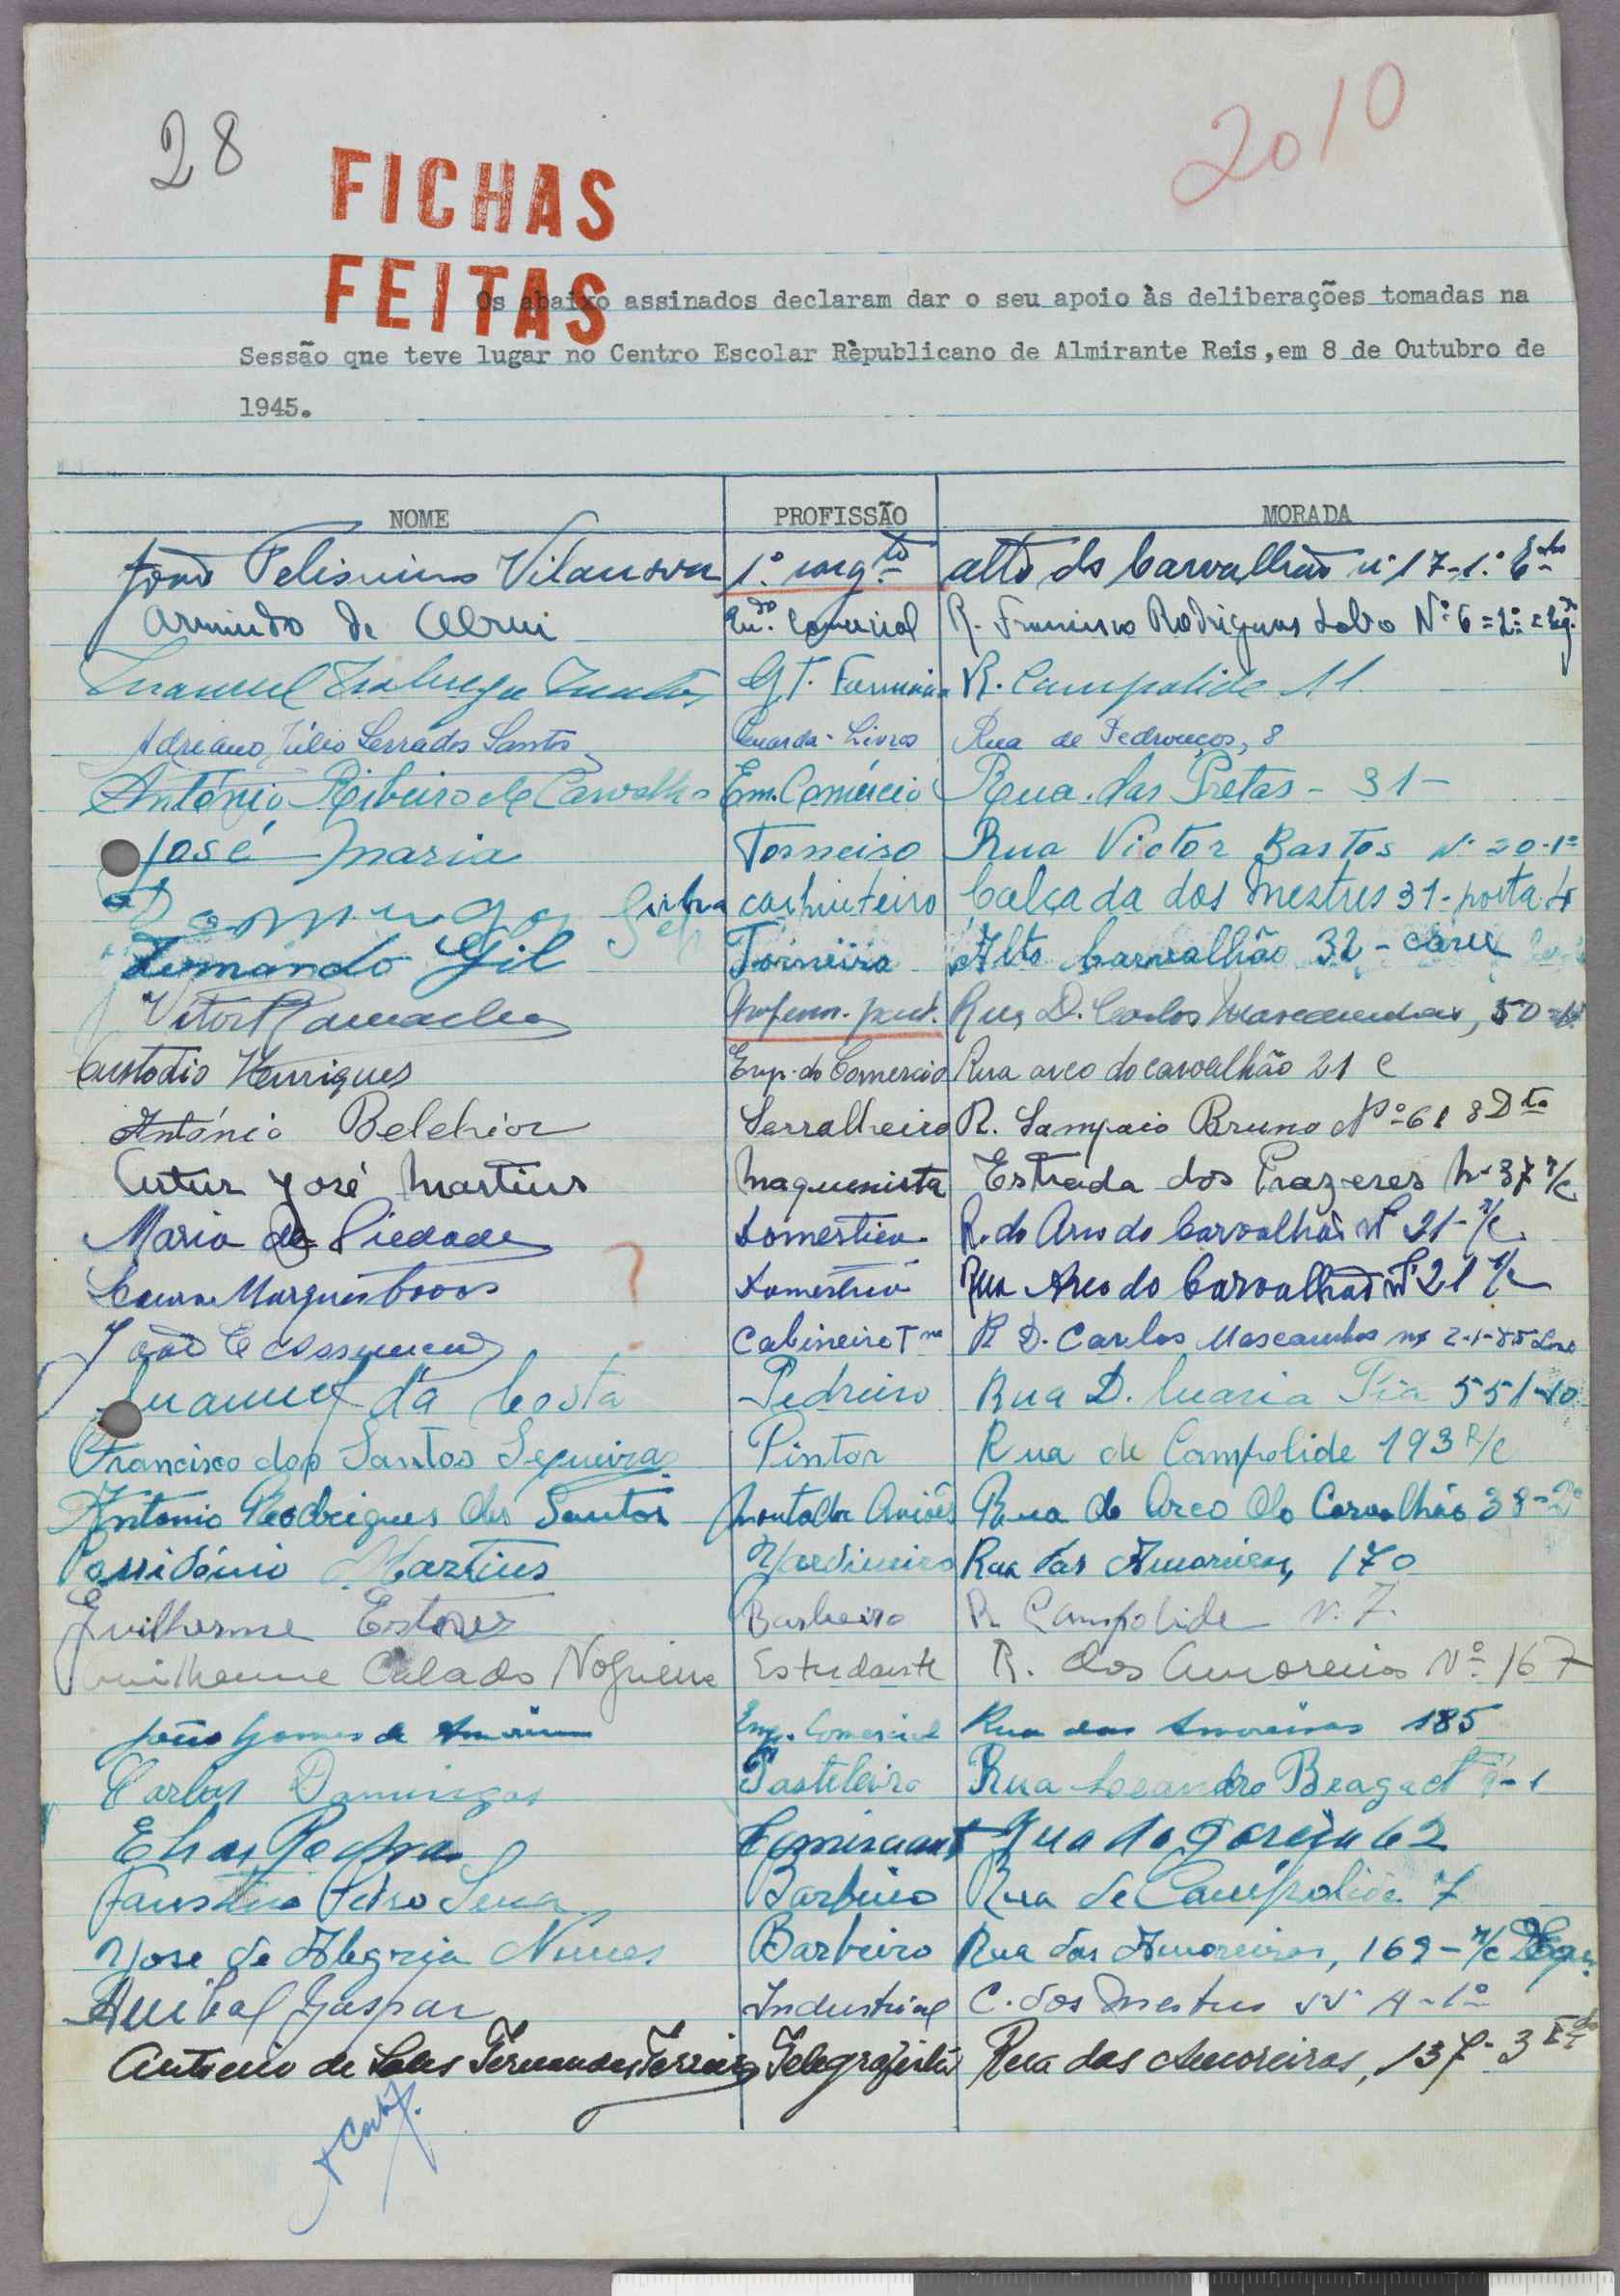 28
2010
FICHAS
FEITAS
Os abaixo assinados declaram dar o seu apoio às deliberações tomadas na
Sessão que teve lugar no Centro Escolar Rèpublicano de Almirante Reis,em 8 de Outubro de
1945.
NOME PROFISSÃO MORADA
João Vilanova 1.º alto do Carvalhão nº 17-1.º
Armindo de Em.do Comercial R. Francisco Rodrigues Lobo Nº 6=2º
Manuel R. Campolide 11
Adriano Júlio Serrados Santos Guarda-Livros Rua de Pedrouços, 8
António Ribeiro de Carvalho Em. Comércio Rua das Pretas - 31-
José Maria Torneiro Rua Victor Bastos Nº 20-1º
Domingos carpinteiro Calçada dos Mestres 31-porta 4
Fernando Gil Torneiro Alto Carvalhão 32-cave
Vitor Ramalho Rua D. Carlos Mascarenhas, 50
Custodio Henriques Emp. do Comercio Rua arco do carvalhão 21 C
António Belchior Serralheiro R. Sampaio Bruno Nº 61 Dto
Artur José Martins Maquenista Estrada dos Prazeres Nº 37 r/c
Maria da Piedade Domestica R. do Arco do Carvalhão Nº 21-r/c
? Domestica Rua Arco do Carvalhão Nº 21 r/c
João Cabineiro R D. Carlos Mascarenhas
Manuel da Costa Pedreiro Rua D. Maria Pia 551-10
Francisco dos Santos Sequeira Pintor Rua de Campolide 193 R/C
Antonio Rodrigues dos Santos Montador Aviões Rua do Arco do Carvalhão 38-2º
Possidónio Martins Yardineiro Rua das Amoreiras, 170
Guilherme Esteves Barbeiro R. Campolide N. 7.
Guilherme Calado Nogueira Estudante R. das Amoreiras Nº 167
João Gomes de Amorim Emp. Comercial Rua das Amoreiras 185
Carlos Domingos Pasteleiro Rua Leandro Braga Nº 9-1
Elias Rocha Comerciant 62
Faustino Pedro Sena Barbeiro Rua de Campolide 7
Yose de Alegria Nunes Barbeiro Rua das Amoreiras, 169-r/c
Anibal Gaspar Industrial C. dos Mestres A-1º
Antonio de Sales Fernandes Ferreira Telegrafista Rua das Amoreiras, 137-3